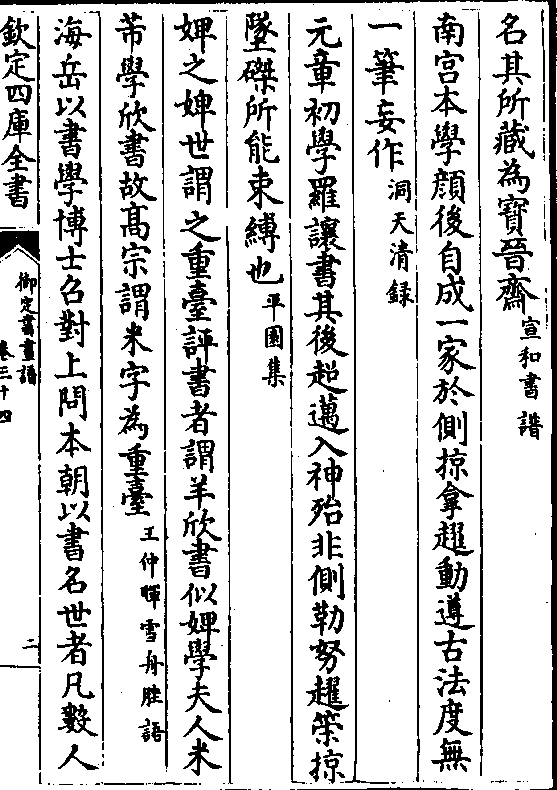 名其所藏為寳晉齋宣和書譜
南宫本學顔後自成一家於側掠拿趯動遵古法度無
一筆妄作洞天清録
元章初學羅讓書其後超邁入神殆非側勒努趯䇿掠
墜磔所能束縛也平園集
婢之婢世謂之重臺評書者謂羊欣書似婢學夫人米
芾學欣書故髙宗謂米字為重臺王仲暉雪舟脞語
海岳以書學博士召對上問本朝以書名世者凡數人
欽定四庫全書
御定書畫譜
卷三十四
二